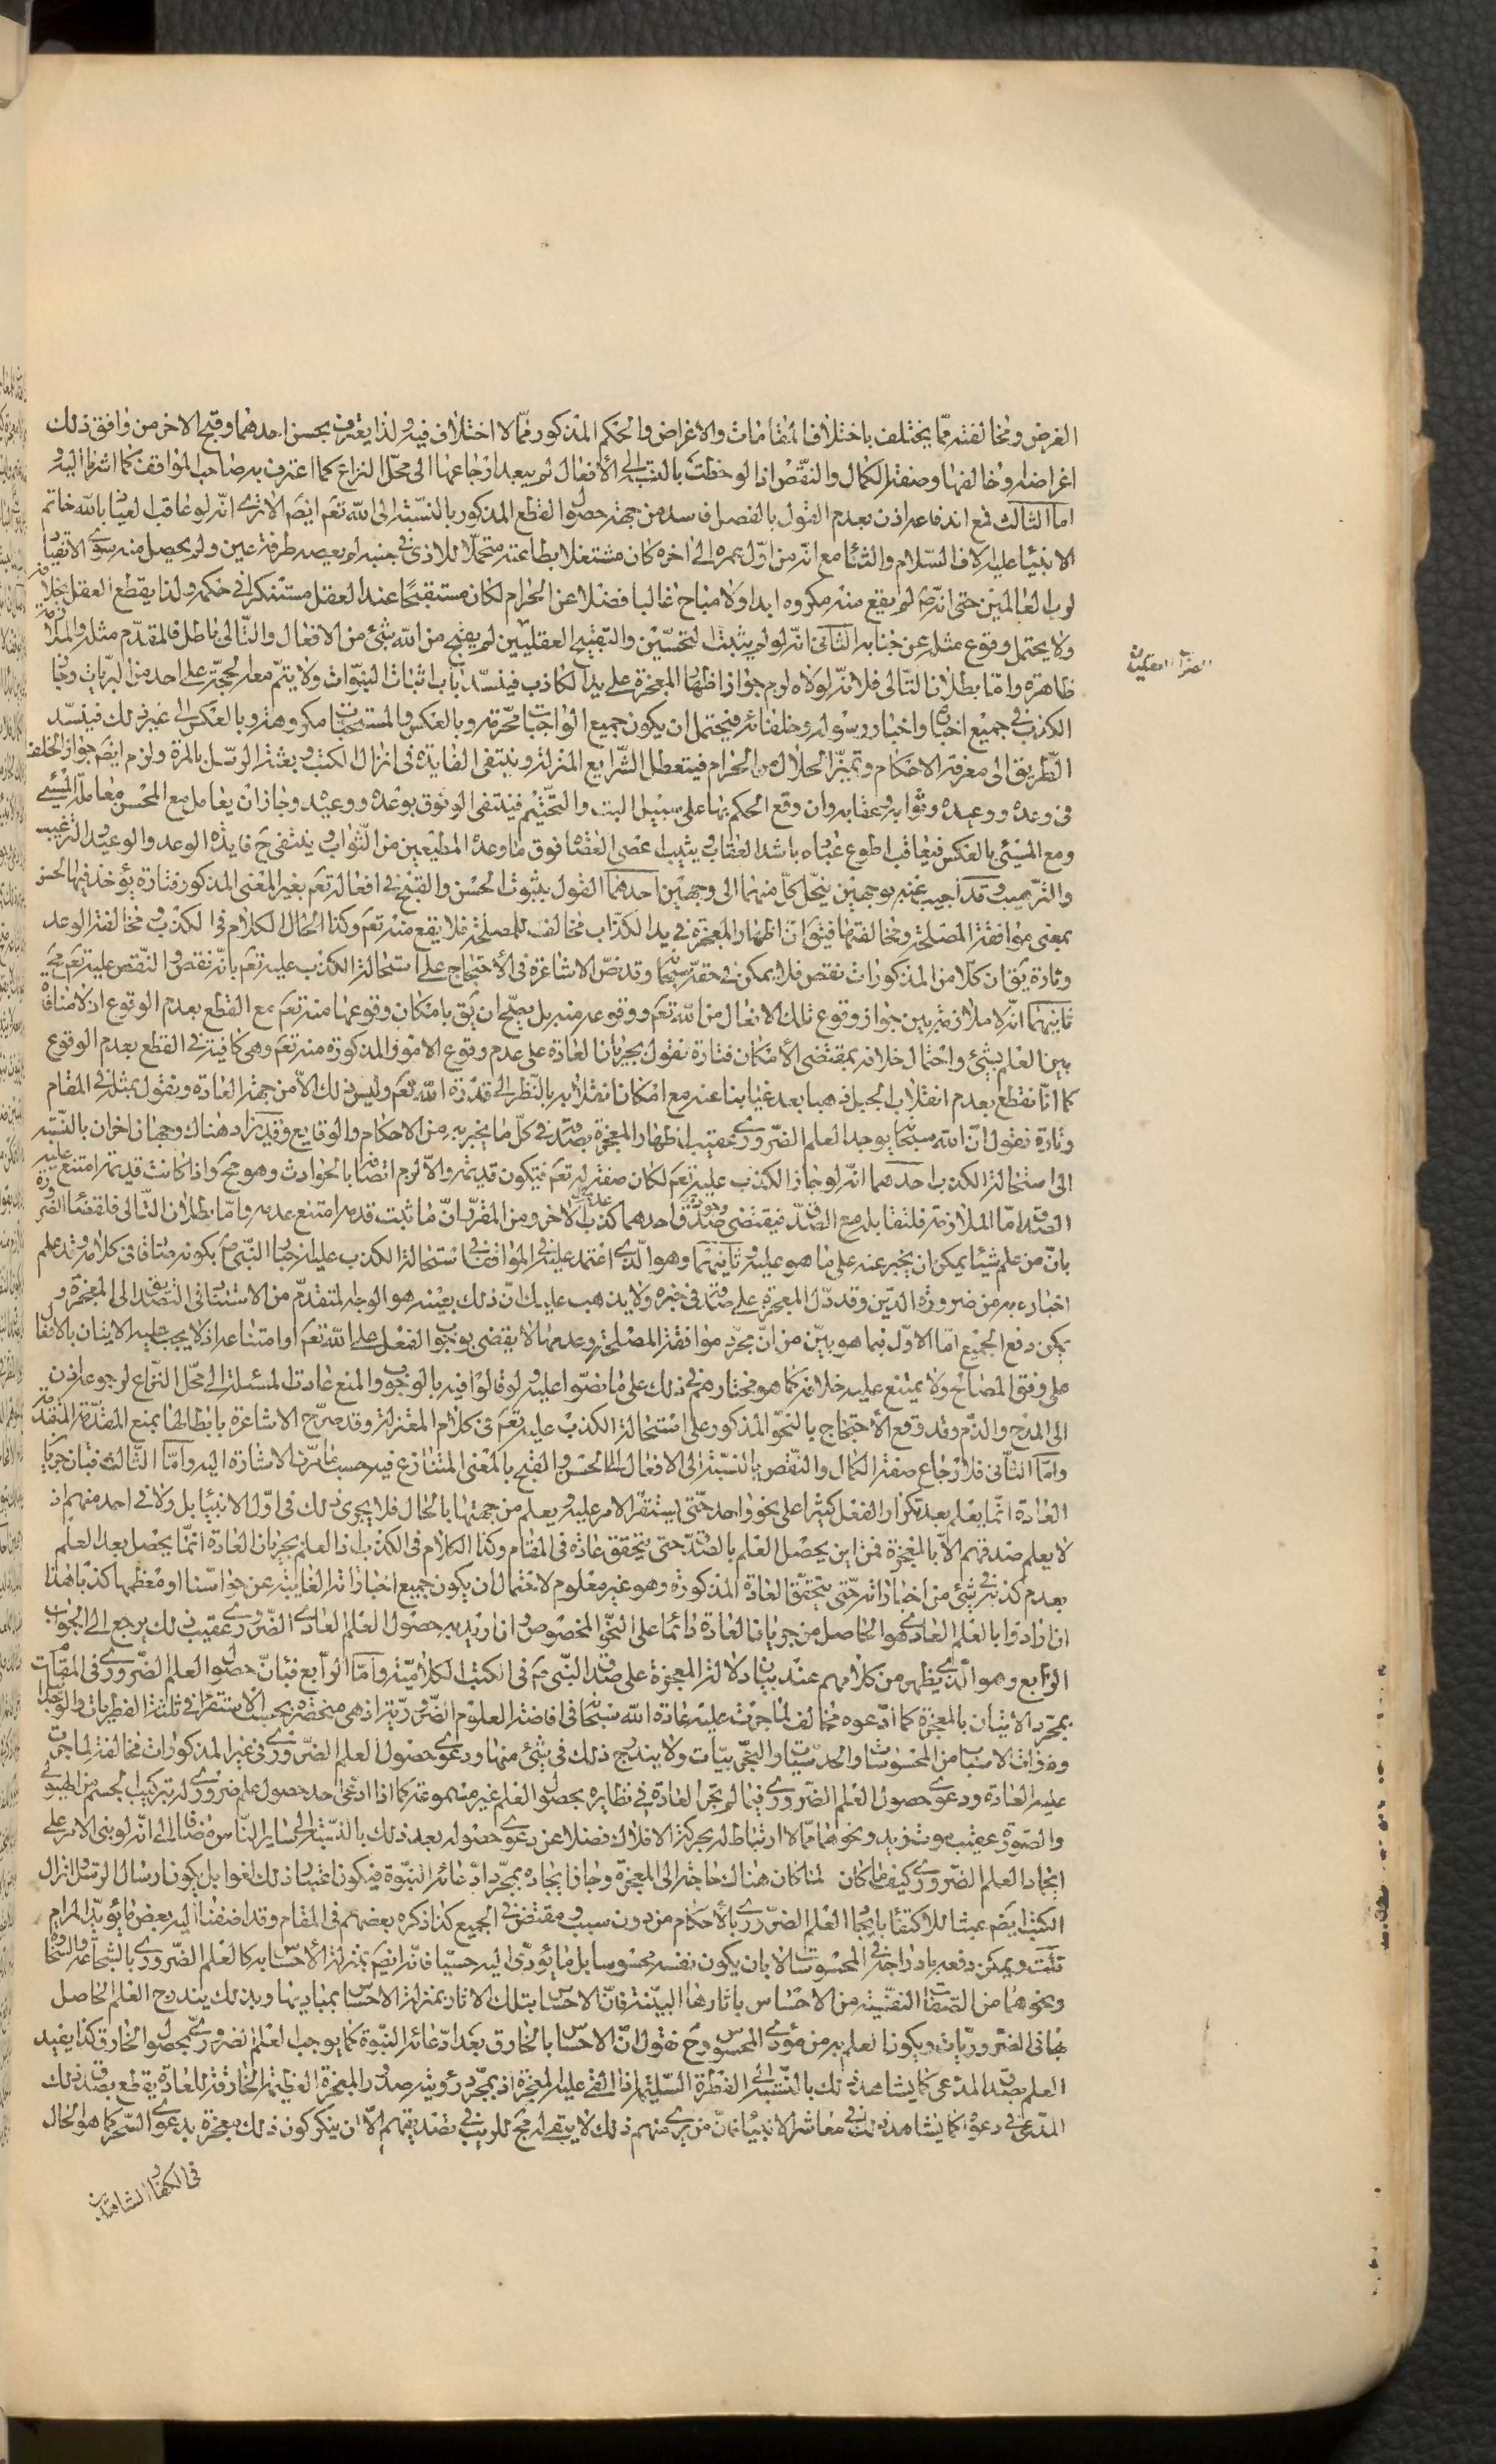 الغرض ومخالفته مما يختلف باختلاف المقامات والاغراض والحكم المذكور فمّا لا اختلاف فيه ولذا يعترف بحسن احدهما وقبح الاخر من وافق ذلك
اغراضه او خالفها وصفة الكمال والنقص اذا لوحظت بالنسبة الى الافعال لم يبعد ارجاعها الى محل النزاع كما اعترف به صاحب المواقف كما اشرنا اليه و
اما الثالث فمع اندفاعه اذن بعدم القول بالفصل فاسد من جهة حصول القطع المذكور بالنسبة الى الله تعم ايضم الا ترى انّه لو عاقب العياذ بالله خاتم
الانبياء عليه الاف السلام والثناء مع انّه من اوّل عمره الى اخره كان مشتغلا بطاعته متحمّلا للاذى في جنبه لم يعصه طرفة عين ولم يحصل منه سوى الانقياد
لرب العالمين حتى انّه لم يقع منه مكروه ابدا ولا مباح غالبا فضلا عن الحرام لكان مستقبحًا عند العقل مستنكرا في حكمه ولذا يقطع العقل بخلافه
ولا يحتمل وقوع مثله عن جنابه الثاني انّه لو لم يثبت التحسين والتقبيح العقليين لم يقبح من الله شئ من الافعال والتالى باطل فالمقدّم مثله والملازمة
ظاهرة وامّا بطلان التالى فلانّه لولاه لزم جواز اظهار المعجزة على يد الكاذب فينسدّ باب اثبات النبوّات ولا يتمّ معه الحجة على احد من البريات وجاز
الكذب في جميع اخباره واخبار رسوله وخلفائه فيحتمل ان يكون جميع الواجبات محرّمة وبالعكس والمستحبات مكروهة وبالعكس الى غير ذلك فينسدّ
الطريق الى معرفة الاحكام وتميّز الحلال من الحرام فيتعطل الشرايع المنزلة وينتفى الفايدة في انزال الكتب وبعثة الرسل بالمرة ولزم ايضم جواز الخلف
في وعده ووعيده وثوابه وعقابه وان وقع الحكم بها على سبيل البت والتحتيم فينتفى الوثوق بوعده ووعيده وجاز ان يعامل مع المحسن معاملة المسئ
ومع المسئ بالعكس فيعاقب اطوع عباده باشد العقاب ويثيب اعصى العصاة فوق ما وعده المطيعين من الثواب وينتفى ح فايدة الوعد والوعيد والترغيب
والترهيب وقد اجيب عنه بوجهين ينحل كلّ منهما الى وجهين احدهما القول بثبوت الحسن والقبح في افعاله تعم بغير المعنى المذكور فتارة يؤخذ فيها الحسن
بمعنى موافقة المصلحة ومخالفتها فيق ان اظهار المعجزة في يد الكذاب مخالف للمصلحة فلا يقع منه تعم وكذا الحال الكلام في الكذب ومخالفة الوعد
وتارة يق ان كلّا من المذكورات نقص فلا يمكن في حقه سبحانه وقد نصّ الاشاعرة في الاحتجاج على استحالة الكذب عليه تعم بانّه نقص والنقص عليه تعم مح
ثانيهما انّه لا ملازمة بين جواز وقوع تلك الافعال من الله تعم ووقوعه منه بل يصحّ ان يق بامكان وقوعها منه تعم مع القطع بعدم الوقوع اذ لا منافاة
بين العلم بشئ واحتمال خلافه بمقتضى الامكان فتارة نقول بجريان العادة على عدم وقوع الامور المذكورة منه تعم وهي كافية في القطع بعدم الوقوع
كما انّا نقطع بعدم انقلاب الجبل ذهبا بعد غيابنا عنه مع امكان انقلابه بالنظر الى قدرة الله تعم وليس ذلك الّا من جهة العادة ونقول بمثله في المقام
وتارة نقول انّ الله سبحانه يوجد العلم الضروري عقيب اظهار المعجزة بصدقه في كلّ ما يخبر به من الاحكام والوقايع وقد يزاد هناك وجهان اخران بالنسبة
الى استحالة الكذب احدهما انّه لو جاز الكذب عليه تعم لكان صفة له تعم فيكون قديمة والّا لزم اتصافه بالحوادث وهو مح واذا كانت قديمة امتنع عليه
الصدق امّا الملازمة فلتقابله مع الصدق فيقتضى صدق احدهما كذب الاخر ومن المقرّر انّ ما ثبت قدمه امتنع عدمه وامّا بطلان التالى فلقضاء الضرورة
بانّ من علم شيئا يمكن ان يخبر عنه على ما هو عليه وثانيهما وهو الّذى اعتمد عليه في المواقف في استحالة الكذب عليه اخبار النبى ص بكونه صادقا في كلامه وقد علم
اخباره به من ضرورة الدّين وقد دلّ المعجزة على صدقه في خبره ولا يذهب عليك انّ ذلك بعينه هو الوجه المتقدّم من الاستناد في التصديق الى المعجزة و
يمكن دفع الجميع امّا الاوّل فبما هو بيّن من انّ مجرّد موافقة المصلحة وعدمها لا يقضى بوجوب الفعل على الله تعم او امتناعه اذ لا يجب عليه الاتيان بالافعال
على وفق المصالح ولا يمتنع عليه خلافه كما هو مختارهم في ذلك على ما نصّوا عليه ولو قالوا فيه بالوجوب والمنع عادت المسئلة الى محلّ النزاع لرجوعه اذن
الى المدح والذم وقد وقع الاحتجاج بالنحو المذكور على استحالة الكذب عليه تعم في كلام المعتزلة وقد صرّح الاشاعرة بابطالها بمنع المقدّمة المتقدمة
وامّا الثانى فلارجاع صفة الكمال والنقص بالنسبة الى الافعال الى الحسن والقبح بالمعنى المتنازع فيه حسبما مرّت الاشارة اليه وامّا الثالث فبان جريان
العادة انّما يعلم بعد تكرار الفعل كثيرا على نحو واحد حتّى يستقر الامر عليه ويعلم من جهتها بالحال فلا يجرى ذلك في اوّل الانبياء بل ولا في احد منهم اذ
لا يعلم صدقهم الّا بالمعجزة فمن اين يحصل العلم بالصدق حتى يتحقق عادة في المقام وكذا الكلام في الكذب اذ العلم بجريان العادة انّما يحصل بعد العلم
بعدم كذبه في شئ من اخباراته حتّى يتحقق العادة المذكورة وهو غير معلوم لاحتمال ان يكون جميع اخباراته الغايبة عن حواسّنا او معظمها كذبا هذا
ان ارادوا بالعلم العادى هو الحاصل من جريان العادة دائما على النحو المخصوص وان اريد به حصول العلم العادى الضرورى عقيب ذلك يرجع الى الجواب
الرّابع وهو الّذى يظهر من كلامهم عند بيان دلالة المعجزة على صدق النّبى ص في الكتب الكلاميّة وامّا الرّابع فبانّ حصول العلم الضرورى في المقامات
بمجرّد الاتيان بالمعجزة كما ادّعوه مخالف لما جرت عليه عادة الله سبحانه في افاضة العلوم الضّروريّة اذ هى منحصرة بحسب الاستقراء في ثلثة الفطريات والوجدانيات
وذوات الاسباب من المحسوسات والحدسيّات والتجربيّات ولا يندرج ذلك في شئ منها ودعوى حصول العلم الضّرورى في غير المذكورات مخالفة لما جرت
عليه العادة ودعوى حصول العلم الضّرورى فيما لم تجر العادة في نظايره بحصول العلم غير مسموعة كما اذا ادّعى احد حصول علم ضرورى له بتركيب الجسم من الهيولى
والصّورة عقيب موت زيد ونحوهما مّا لا ارتباط له بحركة الافلاك فضلا عن دعوى حصوله بعد ذلك بالنّسبة الى ساير الناس مضافا الى انّه لو بنى الامر على
ايجاد العلم الضّرورى كيف ما كان لما كان هناك حاجة الى المعجزة وجاز ايجاده بمجرّد ادّعائه النّبوّة فيكون اعتبار ذلك لغوا بل يكون ارسال الرّسل وانزال
الكتب ايضم عبثا للاكتفاء بايجاد العلم الضرورى بالاحكام من دون سبب ومقتض في الجميع كذا ذكره بعضهم في المقام وقد اضفنا اليه بعض ما يؤيّد المرام
قلت ويمكن دفعه بادراجه في المحسوسات لا بان يكون نفسه محسوسا بل ما يؤدّى اليه حسيّا فانّه ايضم بمنزلة الاحساس به كالعلم الضّرورى بالشجاعة والسّخاوة
ونحوهما من الصّفات النفسيّة من الاحساس باثارها البيّنة فانّ الاحساس بتلك الاثار بمنزلة الاحساس بمباديها وبذلك يندرج العلم الحاصل
بها في الضّروريّات ويكون العلم به من مؤدّى المحسوس وح نقول انّ الاحساس بالخارق بعد ادّعائه النّبوّة كما يوجب العلم الضرورى بحصول الخارق كذا يفيد
العلم بصدق المدّعى كما يشاهد ذلك بالنسبة الى الفطرة السّليمة اذا القى عليه المعجزة اذ بمجرّد رؤيته صدور المعجزة العظيمة الخارقة للعادة يقطع بصدق ذلك
المدّعى في دعواه كما يشاهد ذلك في معاشر الانبياء فانّ من يرى منهم ذلك لا يبقى له مح للريب في تصديقهم الّا ان ينكر كون ذلك معجزة بدعوى السّحر كما هو الحال
في الكفار المشاهدين